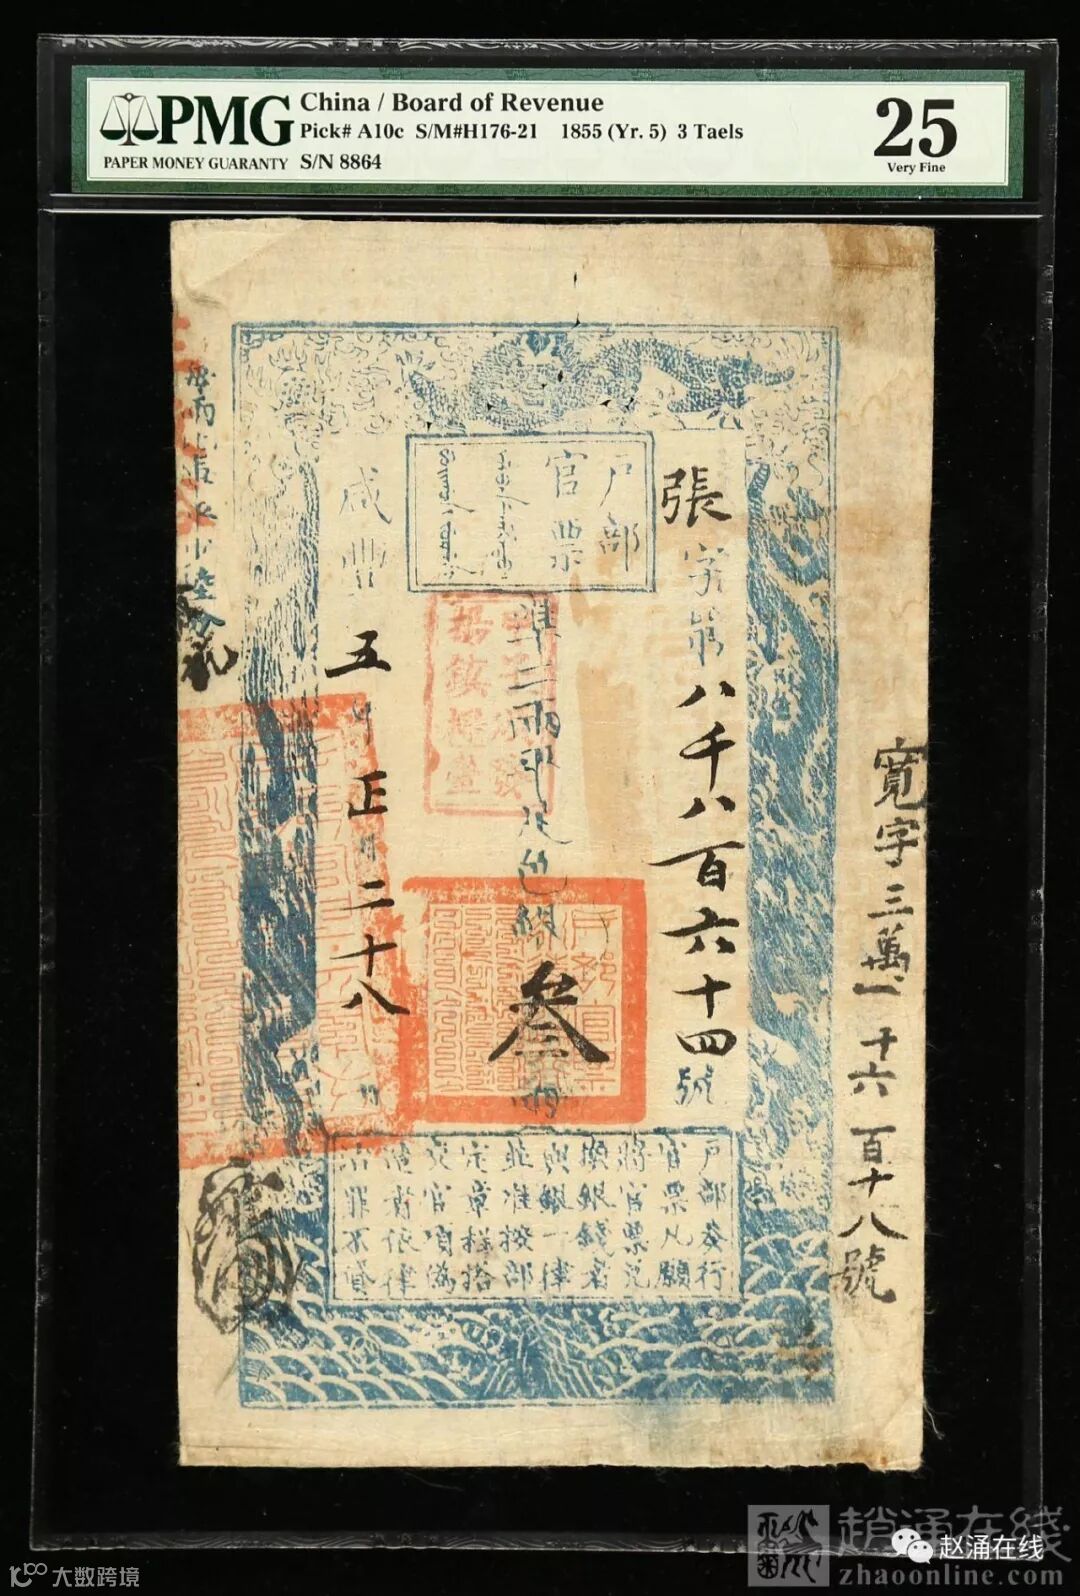 PMG
PAPER MONEY GUARANTY
China / Board of Revenue
Pick# A10c S/M#H176-21 1855 (Yr. 5) 3 Taels
S/N 8864
25
Very Fine
戶部
官票
張字第八千八百六十四號
準二兩平足色銀叁兩
咸豐五年正月二十八日
戶部奏行
官票凡願
將官票兌
換銀錢者
與銀一律
並准按部
定章程搭
交官項偽
造者依律
治罪不貸
寬字三萬一千六百十八號
大数跨境
趙涌在线
赵涌在线
zhaoonline.com